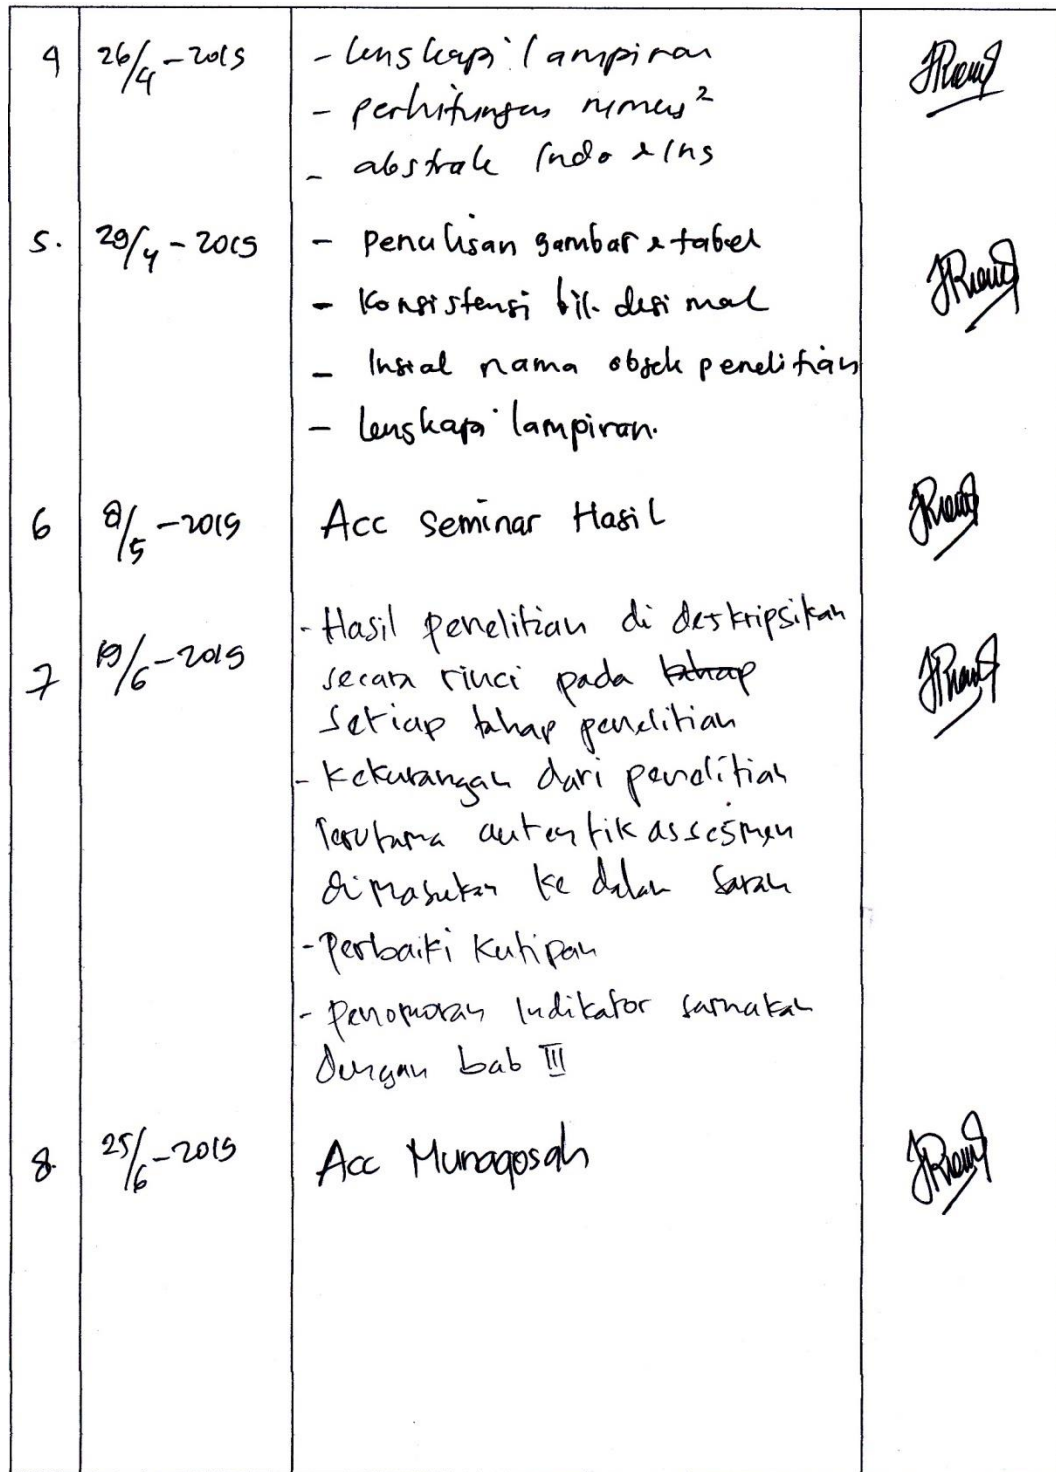 4 26/4 - 2019 - lengkapi lampiran
- perhitungan rumus²
- abstrak Indo & Ing
5. 29/4 - 2019 - penulisan gambar & tabel
- Konsistensi bil. desimal
- Insial nama objek penelitian
- lengkapi lampiran.
6 8/5 - 2019 Acc Seminar Hasil
- Hasil penelitian di deskripsikan
7 19/6 - 2019 secara rinci pada tahap
setiap tahap penelitian
- Kekurangan dari penelitian
Terutama autentik assesmen
dimasukan ke dalam saran
- Perbaiki Kutipan
- penomoran Indikator samakan
dengan bab III
8. 25/6 - 2019 Acc Munaqosah